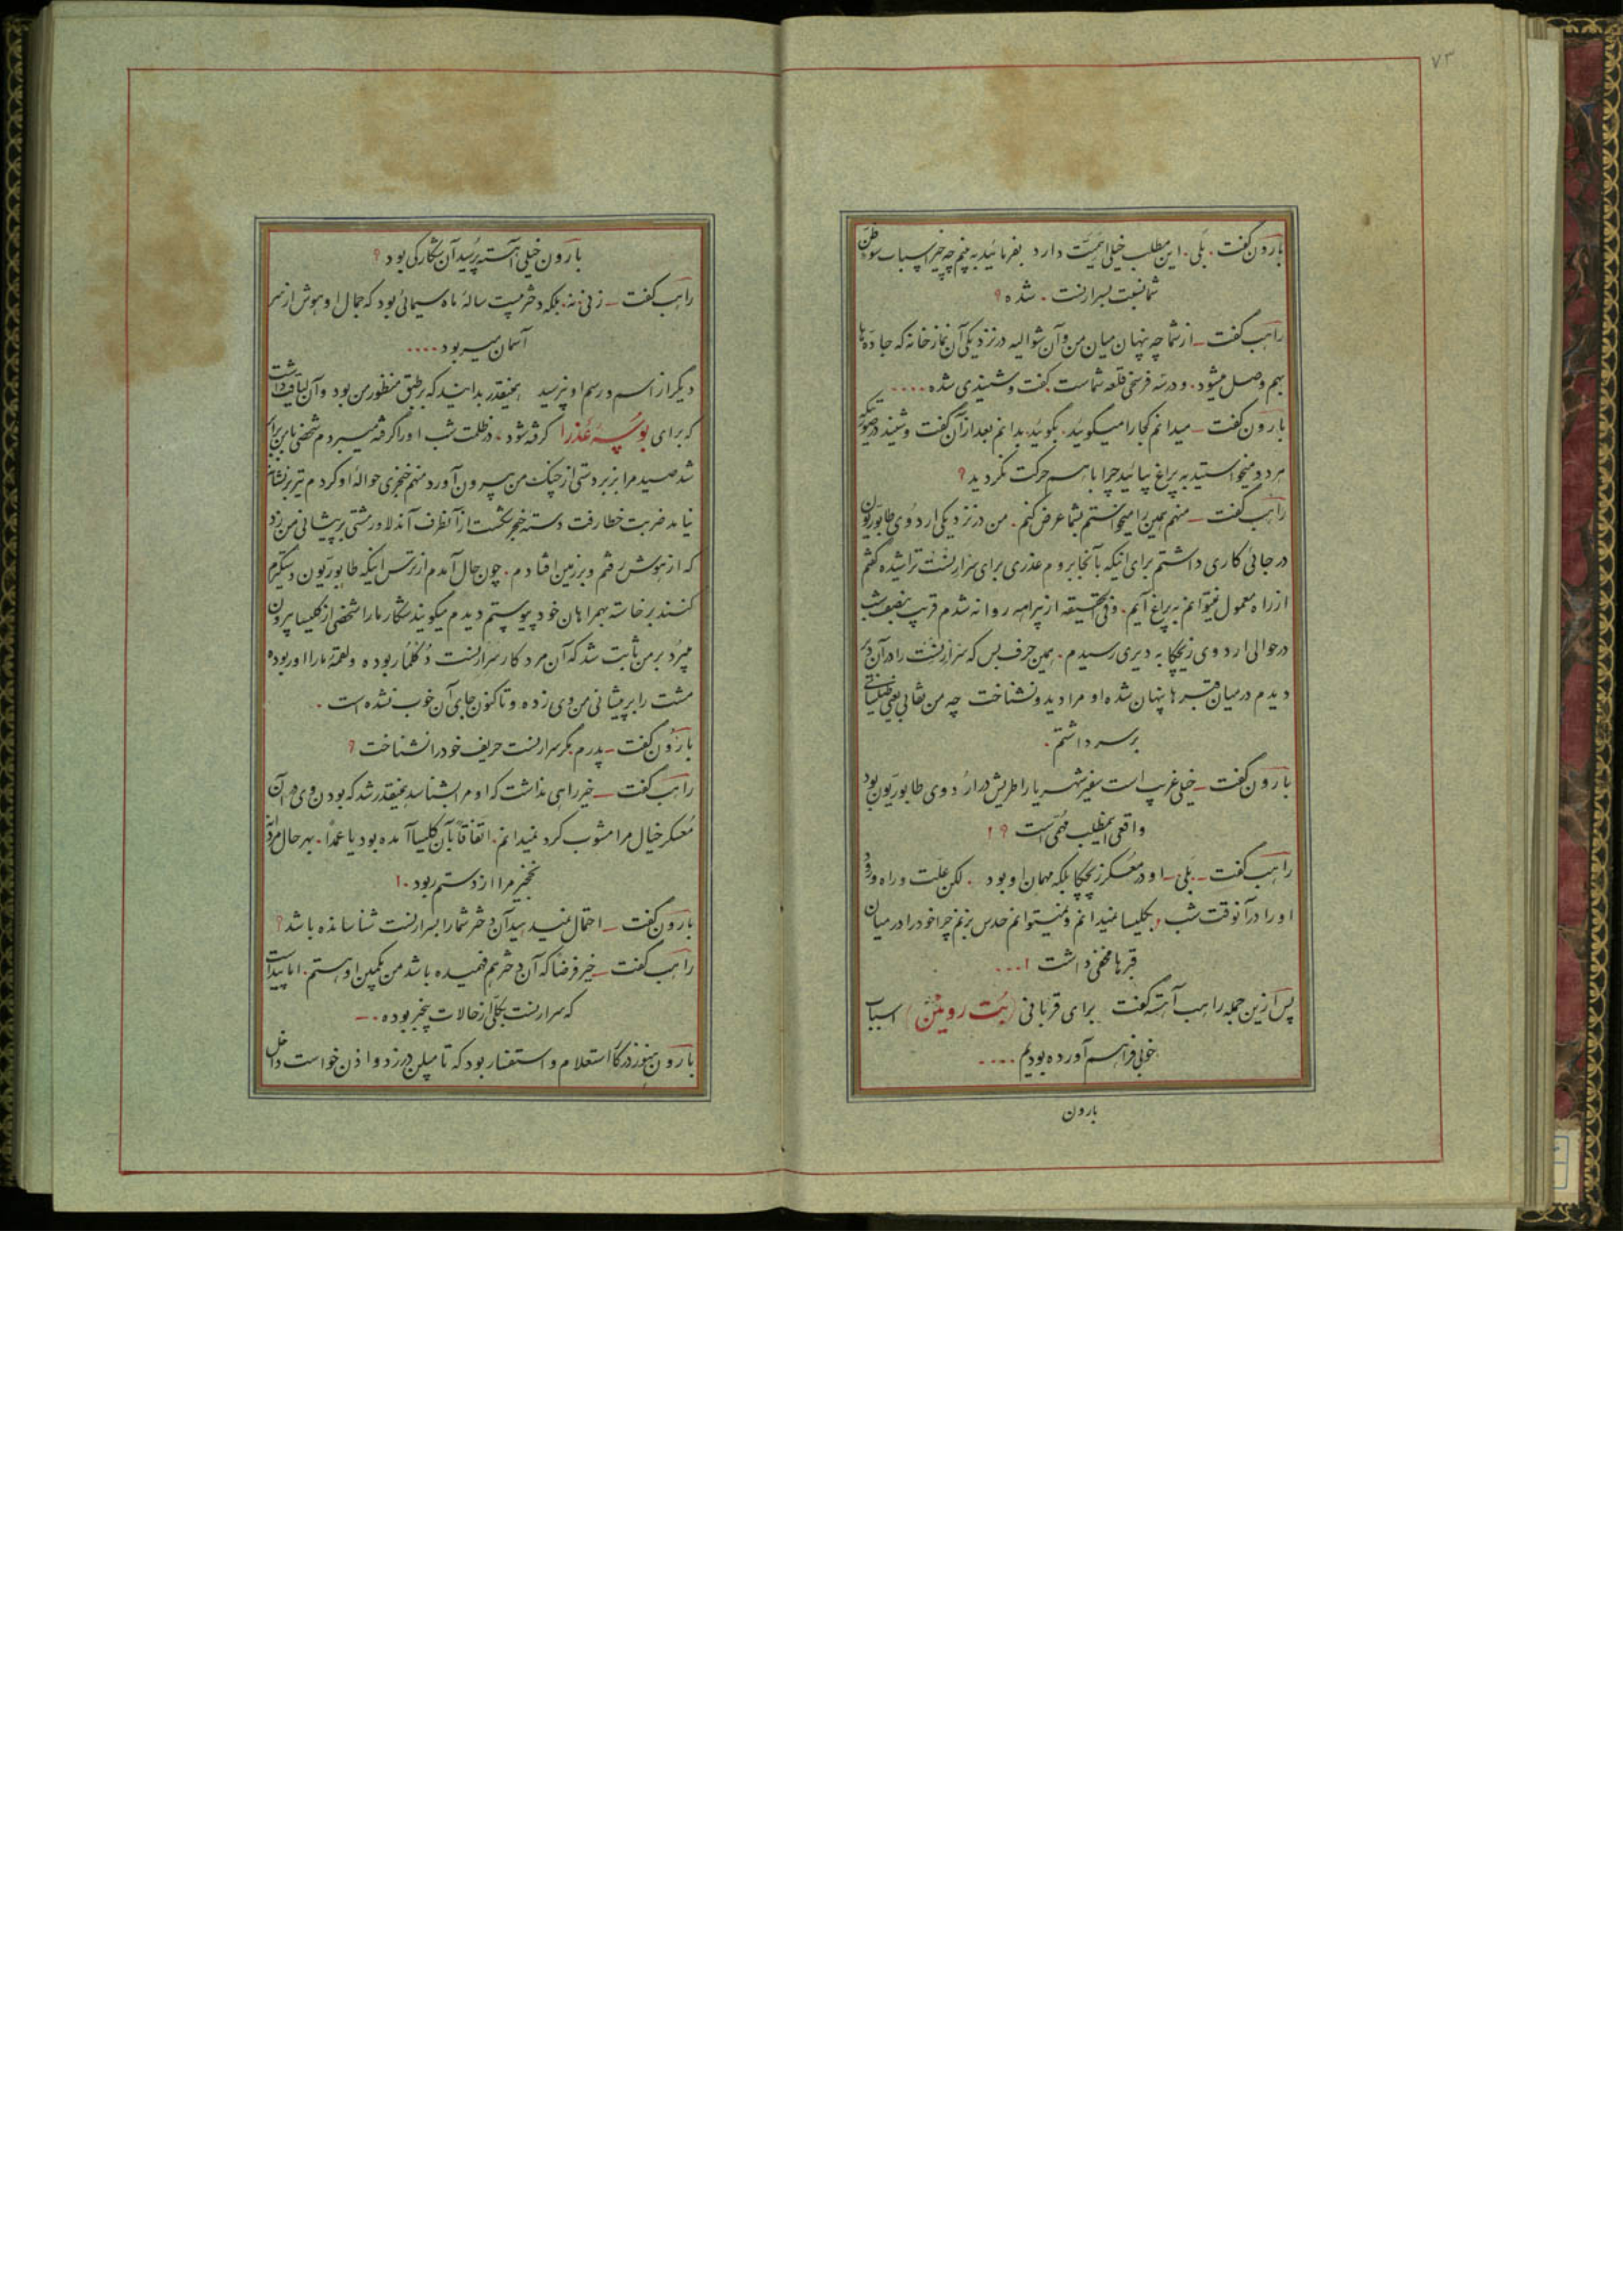 ۷۳
بارون گفت . بلی . این مطلب خیلی اهمیّت دارد بفرمائید به بینم چه چیز اسباب سوء ظن
شما نسبت بسرارنست . شده ؟
راهب گفت – از شما چه پنهان میان من و آن شوالیه در نزدیکی آن نمازخانه که جاده‌ها
بهم وصل میشود . و در سه فرسخی قلعه شماست گفت و شنیدی شده ....
بارون گفت – میدانم کجا را میگوئید . بگوئید بدانم بعد از آن گفت و شنید در صورتیکه
هر دو میخواستید به پراغ بیائید چرا باهم حرکت نکردید ؟
راهب گفت – منهم همین را میخواستم بشما عرض کنم . من در نزدیکی اردوی طابوریون
در جائی کاری داشتم برای اینکه بآنجا بروم عذری برای سرارنست تراشیده گفتم
از راه معمول نمیتوانم به پراغ آیم . و فی الحقیقه از بیراهه روانه شدم قریب بنصف شب
در حوالی اردوی زیچکا به دیری رسیدم . همین حرف بس که سرارنست را در آن دیر
دیدم در میان قبرها پنهان شده او مرا دید و نشناخت چه من نقابی یعنی طیلسانی
بر سر داشتم .
بارون گفت – خیلی غریب است سفیر شهریار اطریش در اردوی طابوریون بود
واقعی اینمطلب مهمی است ؟ !
راهب گفت – بلی – او در معسکر زیچکا بلکه مهمان او بود . لکن علّت و راه ورود
او را در آنوقت شب بکلیسا نمیدانم و نمیتوانم حدس بزنم چرا خود را در میان
قبرها مخفی داشت !...
پس ازین جمله راهب آهسته گفت برای قربانی (بُت روئین) اسباب
خوبی فراهم آورده بودیم ....
بارون
بارون خیلی آهسته پرسید آن شکار کی بود ؟
راهب گفت – زنی نه . بلکه دختر بیست سالهٔ ماه سیمائی بود که جمال او هوش از سر
آسمان میربود ....
دیگر از اسم و رسم او نپرسید همینقدر بدانید که بر طبق منظور من بود و آن لیاقت داشت
که برای بوسهٔ عذرا گرفته شود . در ظلمت شب او را گرفته میبردم شخصی نابرابر
شد صید مرا بزبردستی از چنگ من بیرون آورد منهم خنجری حوالهٔ او کردم تیر بر نشانه
نیامد ضربت خطا رفت دستهٔ خنجر شکست از آنطرف آن دلاور مشتی بر پیشانی من زد
که از هوش رفتم و بر زمین افتادم . چون حال آمدم از ترس اینکه طابوریون دستگیرم
کنند برخاسته بهمراهان خود پیوستم دیدم میگویند شکار ما را شخصی از کلیسا بیرون
میبرد بر من ثابت شد که آن مرد کار سرارنست دُکلمار بوده و لقمهٔ ما را او ربوده
مشت را بر پیشانی من وی زده و تاکنون جای آن خوب نشده است .
بارون گفت – پدرم مگر سرارنست حریف خود را نشناخت ؟
راهب گفت – خیر راهی نداشت که او مرا بشناسد همینقدر شد که بودن وی در آن
معسکر خیال مرا مشوب کرد نمیدانم . اتفاقاً بآن کلیسا آمده بود یا عمداً . بهر حال مردانه
نخجیر مرا از دستم ربود . !
بارون گفت – احتمال نمیدهید آن دختر شما را بسرارنست شناسانده باشد ؟
راهب گفت – خیر فرضاً که آن دختر هم فهمیده باشد من بکمین او هستم . اما پیداست
که سرارنست بکلّی از حالات بیخبر بوده . –
بارون هنوز در کار استعلام و استفسار بود که تامپلن در زد و اذن خواست داخل